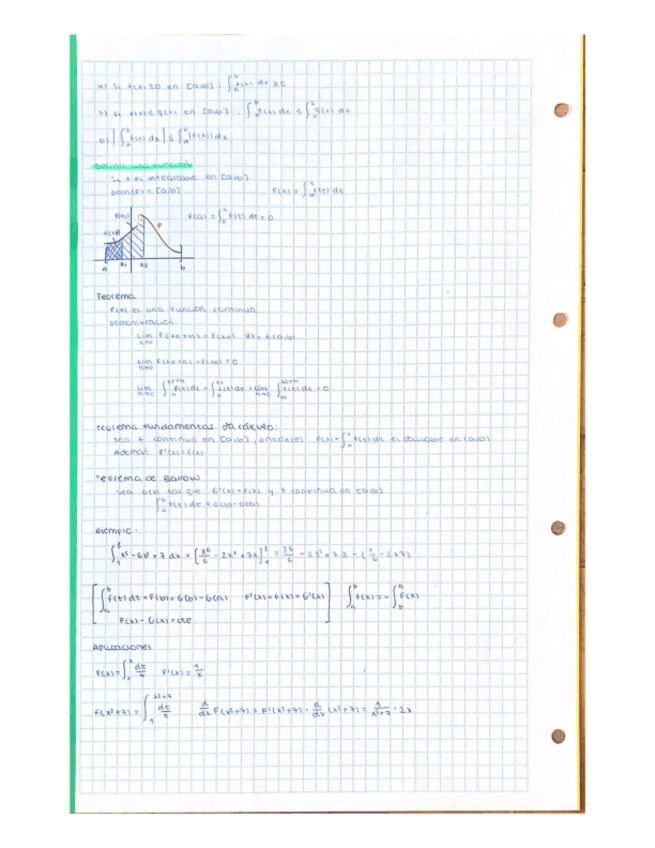 4) Si f(x)≥0 en [a,b] : ∫_a^b f(x) dx ≥0
5) Si f(x)≤g(x) en [a,b] . ∫_a^b f(x) dx ≤ ∫_a^b g(x) dx
6) |∫_a^b f(x) dx| ≤ ∫_a^b |f(x)| dx
Definir una función
Si f es integrable en [a,b]
Dom(F) = [a,b] F(x) = ∫_a^x f(t) dt
F(a) = ∫_a^a f(t) dt = 0
a x1 x2 b
Teorema
F(x) es una función continua
Demostración:
lim h→0 F(x0+h) = F(x0) ∀x0 ∈ (a,b)
lim h→0 F(x0+h) - F(x0) = 0
lim h→0 ∫_a^x0+h f(t) dt - ∫_a^x0 f(t) dt = lim h→0 ∫_x0^x0+h f(t) dt = 0
Teorema fundamental del cálculo:
Sea f continua en [a,b], entonces F(x) = ∫_a^x f(t) dt es derivable en [a,b]
Además F'(x) = f(x)
Teorema de Barrow
Sea G(x) tal que G'(x) = f(x) y f continua en [a,b]
∫_a^b f(t) dt = G(b) - G(a)
Ejemplo:
[∫_a^b f(t) dt = F(b) = G(b) - G(a) F'(x) = f(x) = G'(x)] ∫_a^b f(x) = - ∫_b^a f(x)
F(x) - G(x) = cte
Aplicaciones
F(x) = ∫_1^x dt/t F'(x) = 1/x
F(x²+7) = ∫_1^x²+7 dt/t d/dx F(x²+7) = F'(x²+7) · d/dx (x²+7) = 1/x²+7 · 2x